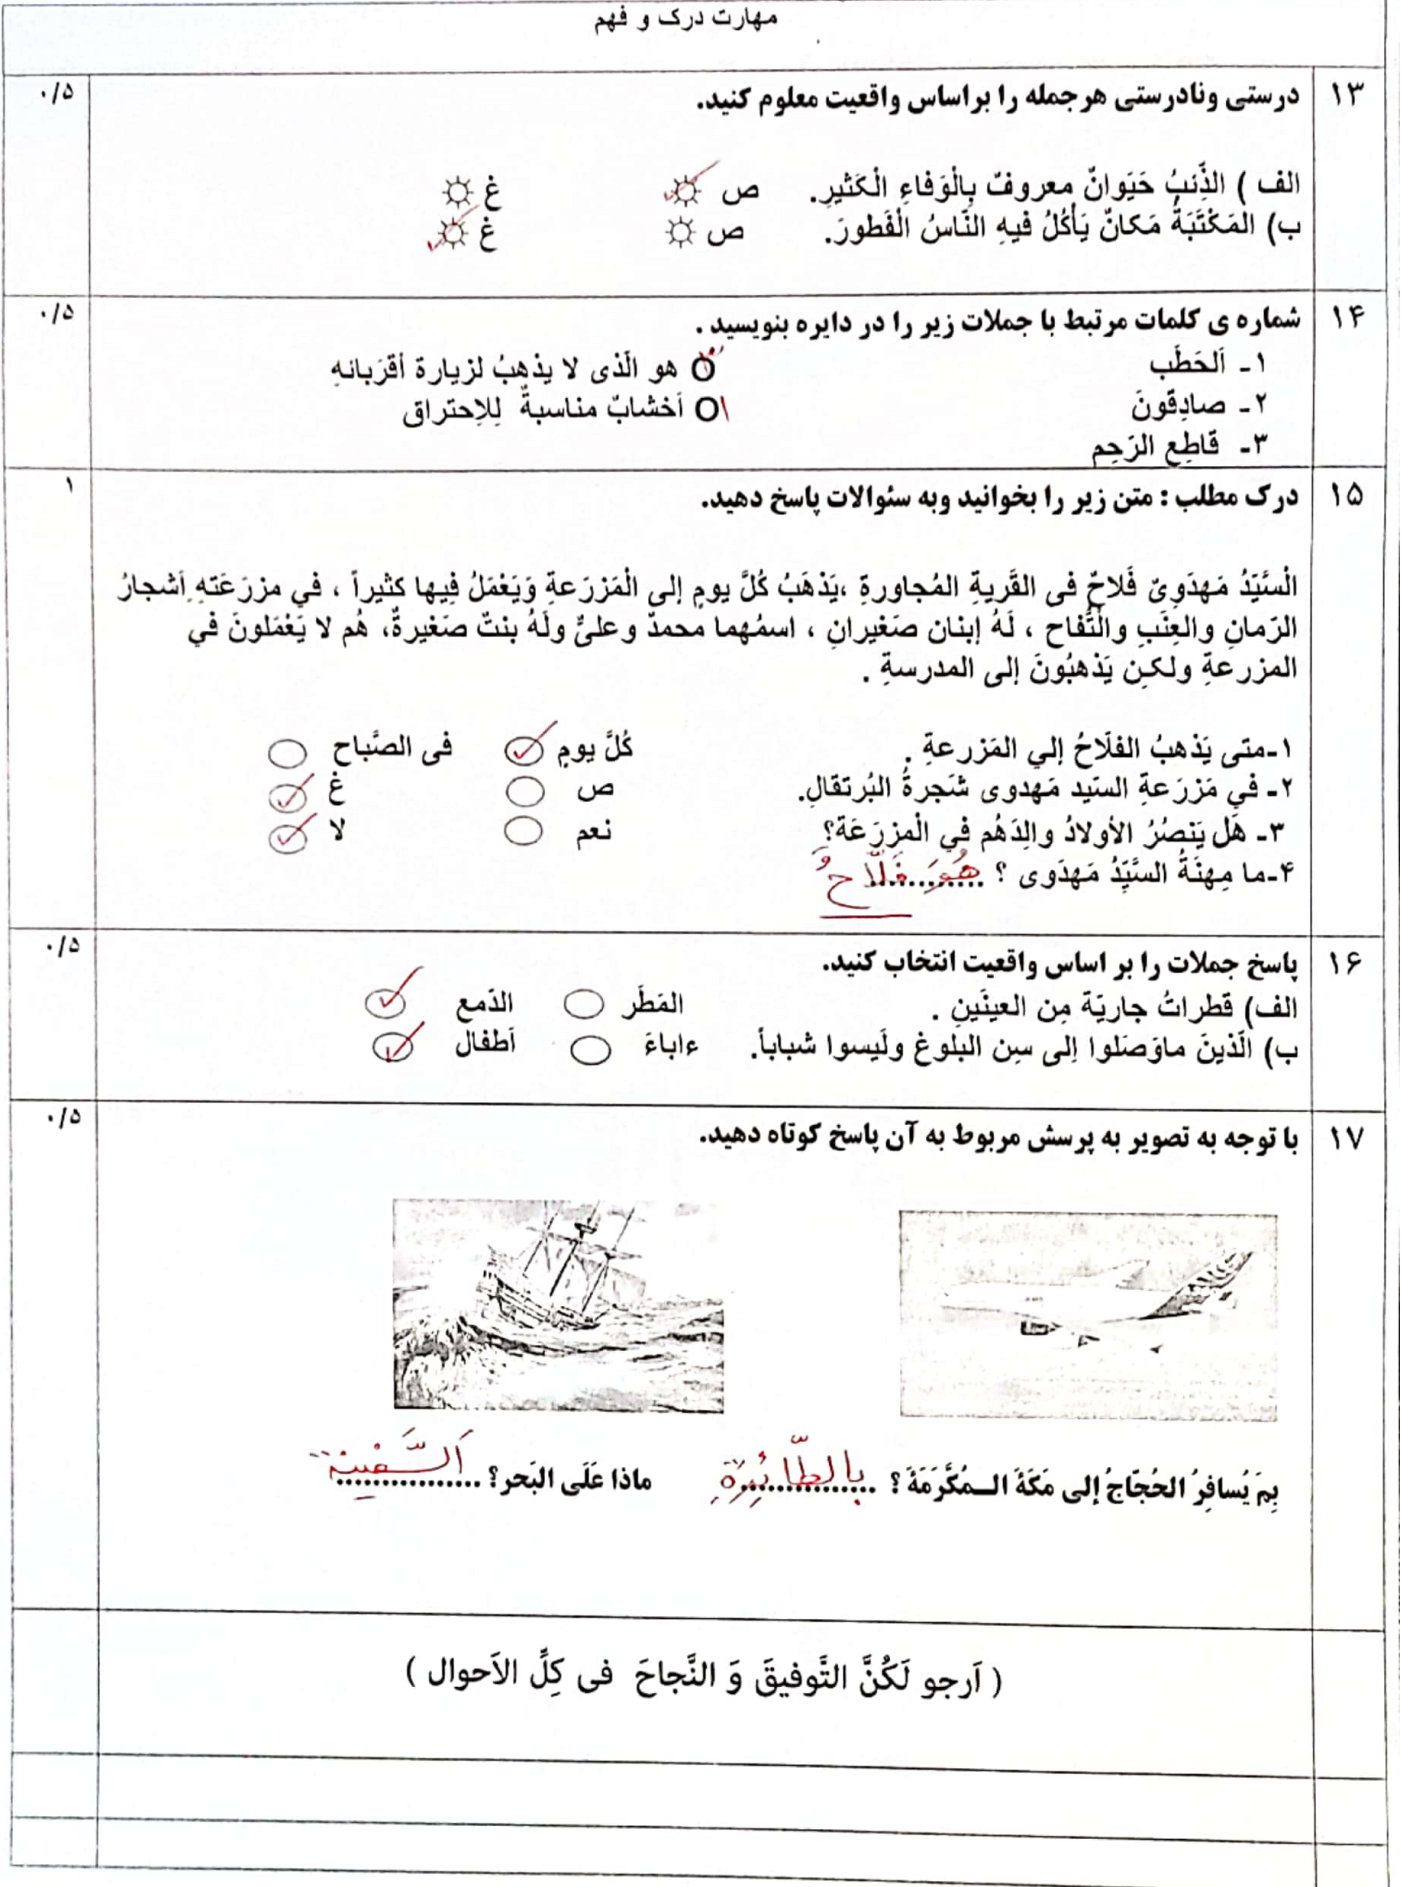 مهارت درک و فهم
۱۳ درستی ونادرستی هرجمله را براساس واقعیت معلوم کنید. ۰/۵
الف ) الذِّئبُ حَیَوانٌ معروفٌ بِالْوَفاءِ الْکَثیرِ. ص غ
ب) المَکْتَبَةُ مَکانٌ یَأکُلُ فیهِ النّاسُ الْفَطورَ. ص غ
۱۴ شماره ی کلمات مرتبط با جملات زیر را در دایره بنویسید . ۰/۵
۱ـ اَلحَطَب ۳ هو الّذی لا یذهبُ لزیارة أقرَبائهِ
۲ـ صادِقونَ ۱ أخشابٌ مناسبةٌ لِلِاحتراق
۳ـ قاطِع الرَحِم
۱۵ درک مطلب : متن زیر را بخوانید وبه سئوالات پاسخ دهید. ۱
الْسَّیّدُ مَهدَویّ فَلاحٌ فی القَریةِ المُجاورةِ ،یَذْهَبُ کُلَّ یومٍ إلی الْمَزرَعةِ وَیَعْمَلُ فِیها کثیراً ، في مزرَعَتهِ اَشجارُ
الرّمانِ والعِنَبِ والتُّفاح ، لَهُ إبنان صَغیرانِ ، اسمُهما محمدٌ وعلیٌّ ولَهُ بنتٌ صَغیرةٌ، هُم لا یَعْمَلونَ في
المزرعةِ ولکـِن یَذْهبُونَ إلی المدرسةِ .
۱ـمتی یَذهبُ الفلّاحُ إلي المَزرعةِ . کُلَّ یومٍ فی الصَّباح
۲ـ في مَزرَعةِ السَّید مَهدوی شَجرةُ البُرتقالِ. ص غ
۳ـ هَل یَنصُرُ الأولادُ والِدَهُم في الْمزرَعَة؟ نعم لا
۴ـما مِهنَةُ السَّیِّدُ مَهدَوی ؟ ............. هُوَ فَلّاحٌ
۱۶ پاسخ جملات را بر اساس واقعیت انتخاب کنید. ۰/۵
الف) قطراتُ جاریّة مِن العینَینِ . المَطَر الدّمع
ب) الّذینَ ماوَصَلوا إلی سِن البلوغ ولَیسوا شباباً. ءاباءَ أطفال
۱۷ با توجه به تصویر به پرسش مربوط به آن پاسخ کوتاه دهید. ۰/۵
بِمَ یُسافِرُ الحُجّاجُ إلی مَکَةَ الــمُکَّرَمَةَ ؟ ................ بِالطّائِرَةِ ماذا عَلَی البَحر؟ ................ اَلسَّفینة
( اَرجو لَکُنَّ التَّوفیقَ وَ النَّجاحَ فی کِلِّ الاَحوال )